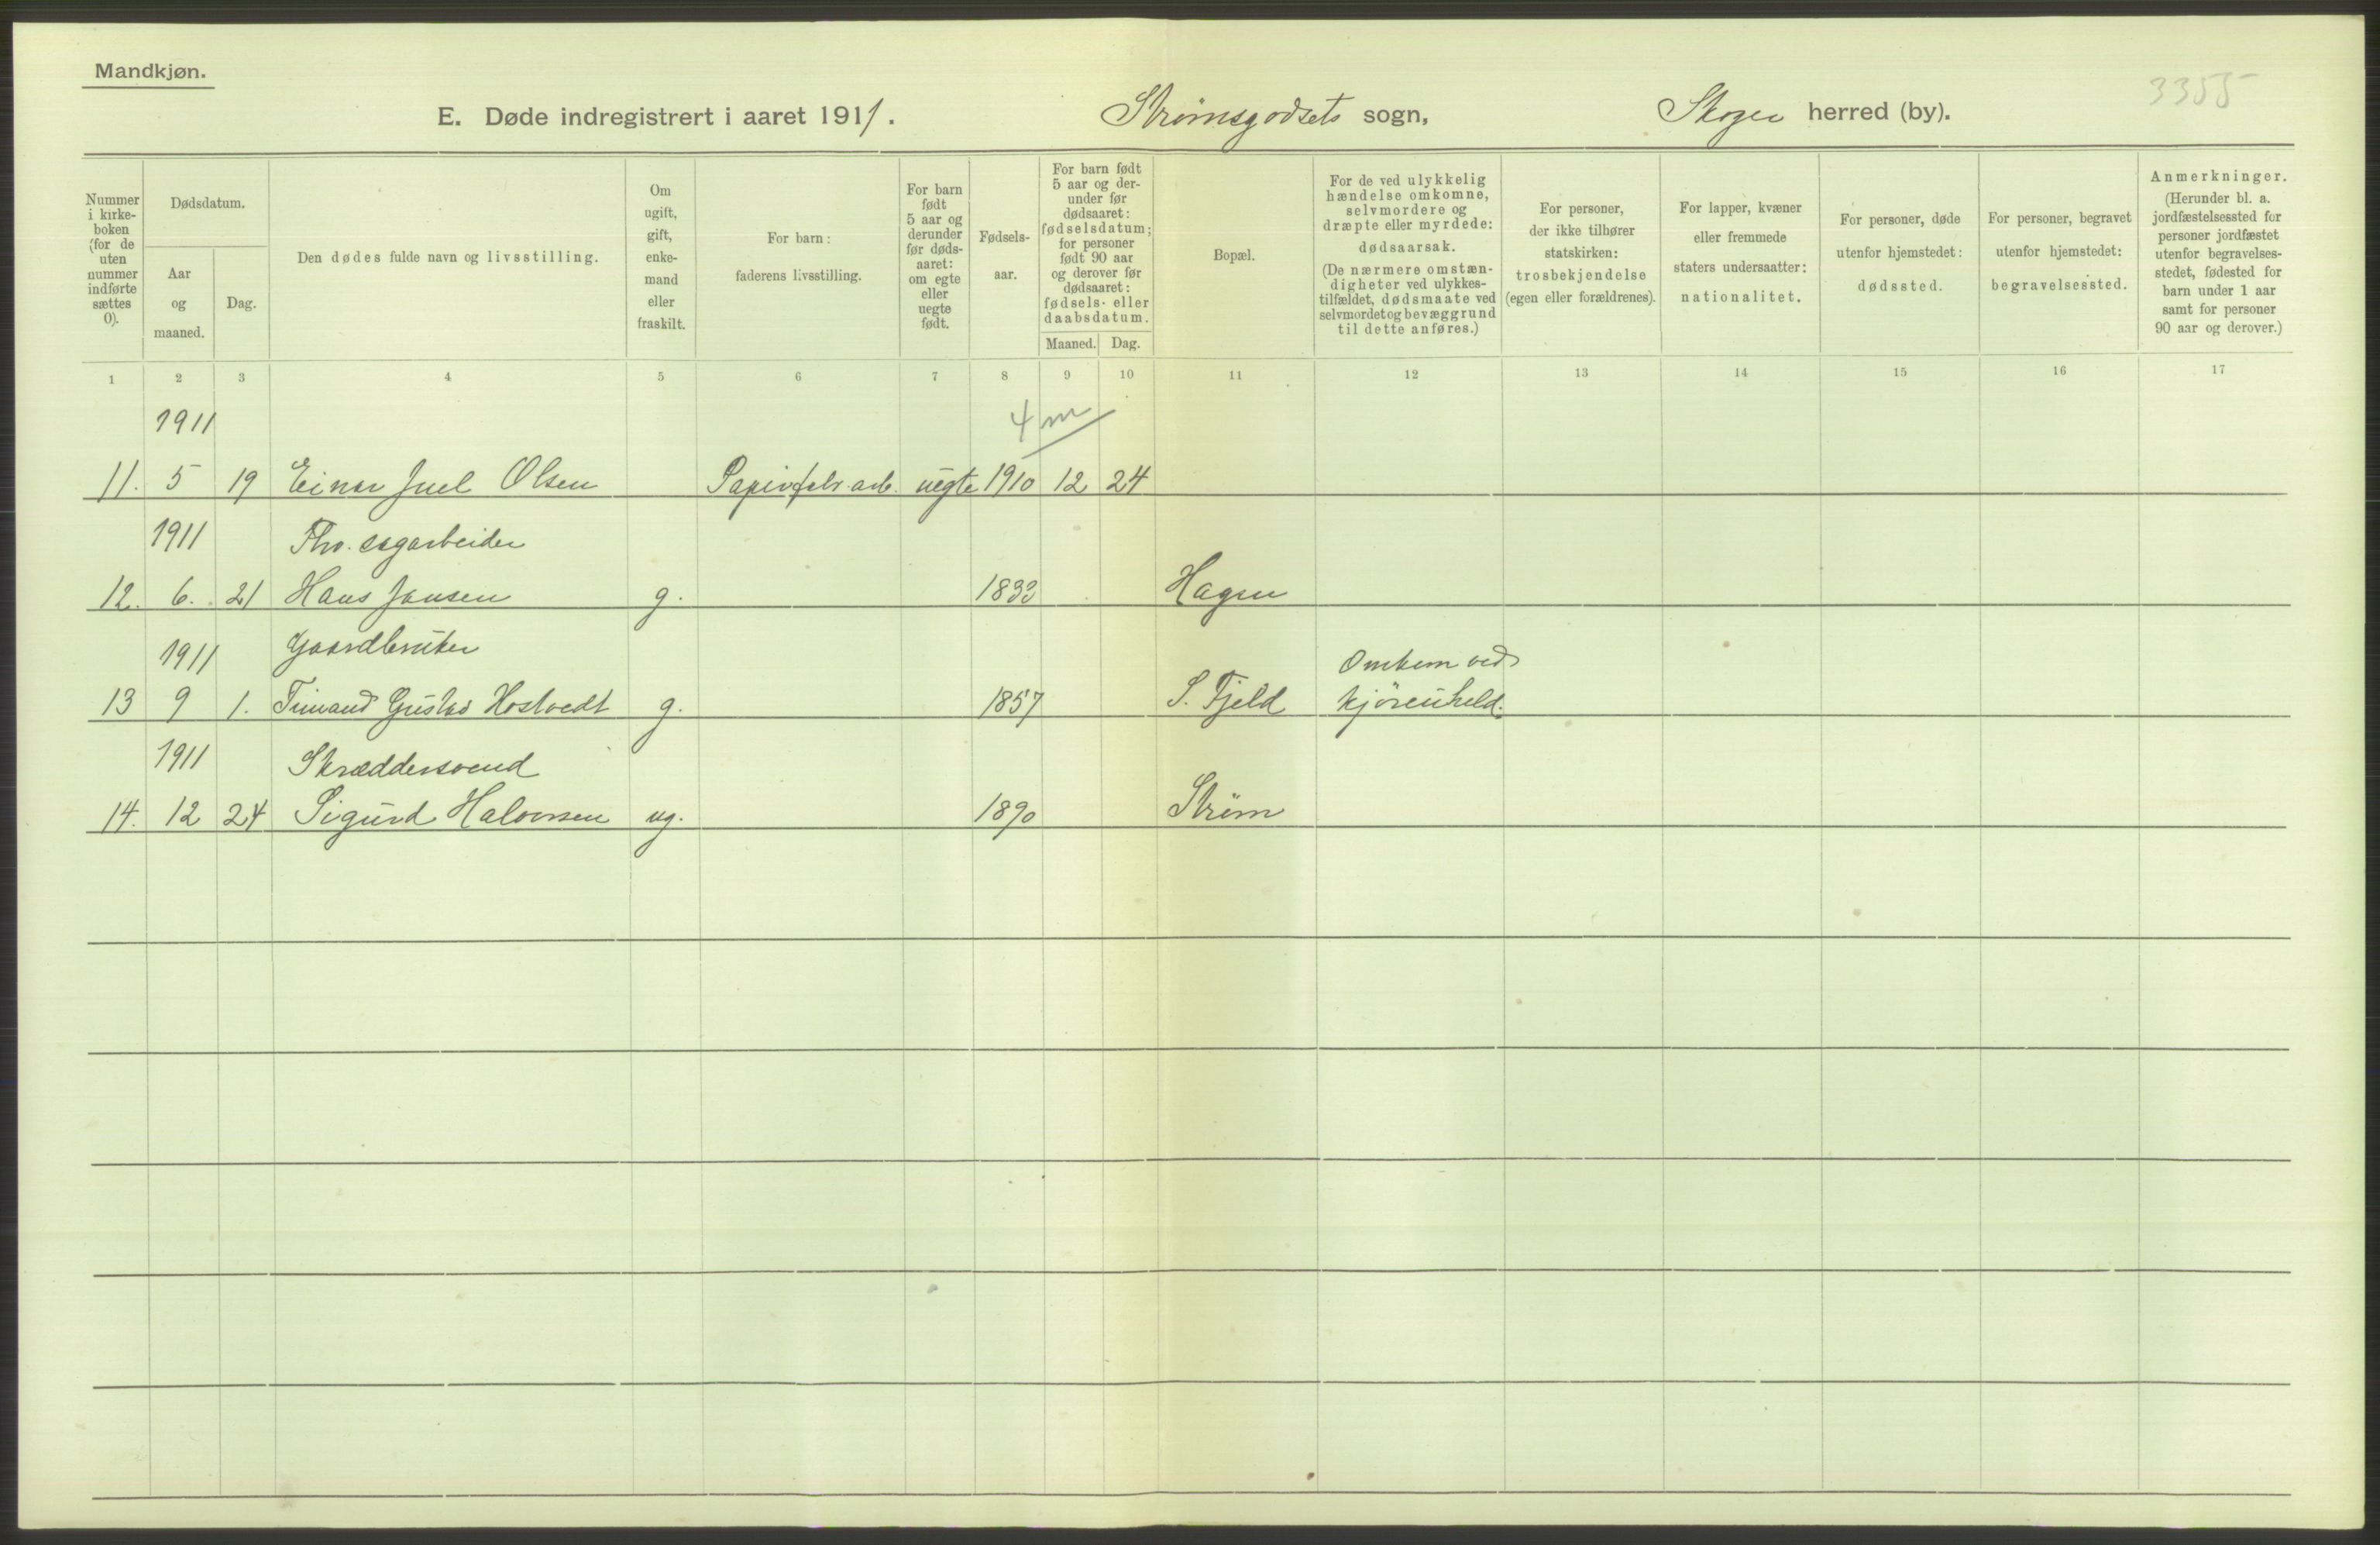 Mandkjøn.
3355
E. Døde indregistrert i aaret 1911. Strømsgodsets sogn, Skoger herred (by).
Nummer i kirkeboken (for de uten nummer indførte sættes 0).
Dødsdatum.
Aar og maaned.
Dag.
Den dødes fulde navn og livsstilling.
Om ugift, gift, enkemand eller fraskilt.
For barn: faderens livsstilling.
For barn født 5 aar og derunder før dødsaaret: om egte eller uegte født.
Fødselsaar.
For barn født 5 aar og derunder før dødsaaret: fødselsdatum; for personer født 90 aar og derover før dødsaaret: fødsels- eller daabsdatum.
Maaned. Dag.
Bopæl.
For de ved ulykkelig hændelse omkomne, selvmordere og dræpte eller myrdede: dødsaarsak. (De nærmere omstændigheter ved ulykkestilfældet, dødsmaate ved selvmordet og bevæggrund til dette anføres.)
For personer, der ikke tilhører statskirken: trosbekjendelse (egen eller forældrenes).
For lapper, kvæner eller fremmede staters undersaatter: nationalitet.
For personer, døde utenfor hjemstedet: dødssted.
For personer, begravet utenfor hjemstedet: begravelsessted.
Anmerkninger. (Herunder bl. a. jordfæstelsessted for personer jordfæstet utenfor begravelsesstedet, fødested for barn under 1 aar samt for personer 90 aar og derover.)
1 2 3 4 5 6 7 8 9 10 11 12 13 14 15 16 17
1911 4 m
11. 5 19 Einar Juel Olsen Papirfabr. arb. uegte 1910 12 24
1911 Fhv. sagarbeider
12. 6. 21 Hans Jansen g. 1833 Hagen
1911 Gaardbruker Omkom ved
13 9 1. Gustav Hostvedt g. 1857 S. Fjeld kjøreuheld.
1911 Skræddersvend
14. 12 24 Sigurd Halvorsen ug. 1890 Strøm